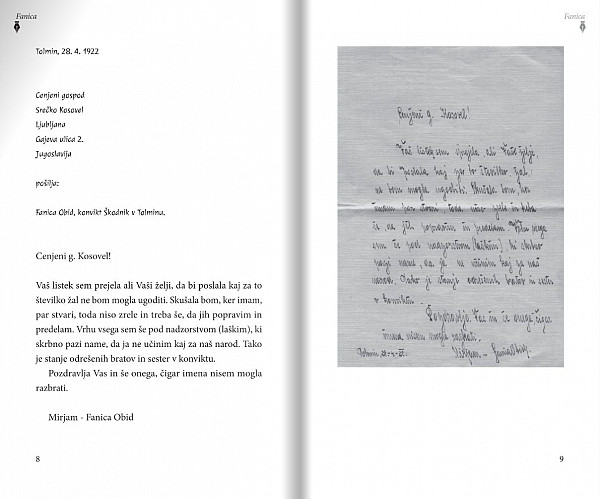 Fanica
Tolmin, 28. 4. 1922
Cenjeni gospod
Srečko Kosovel
Ljubljana
Gajeva ulica 2.
Jugoslavija
pošilja:
Fanica Obid, konvikt Škodnik v Tolminu.
Cenjeni g. Kosovel!
Vaš listek sem prejela ali Vaši želji, da bi poslala kaj za to
številko žal ne bom mogla ugoditi. Skušala bom, ker imam,
par stvari, toda niso zrele in treba še, da jih popravim in
predelam. Vrhu vsega sem še pod nadzorstvom (laškim), ki
skrbno pazi name, da ja ne učinim kaj za naš narod. Tako
je stanje odrešenih bratov in sester v konviktu.
Pozdravlja Vas in še onega, čigar imena nisem mogla
razbrati.
Mirjam - Fanica Obid
8
Fanica
Cenjeni g. Kosovel!
Vaš listek sem prejela ali Vaši želji,
da bi poslala kaj za to številko žal
ne bom mogla ugoditi. Skušala bom, ker
imam par stvari, toda niso zrele in treba
še, da jih popravim in predelam. Vrhu vsega
sem še pod nadzorstvom (laškim), ki skrbno
pazi name, da ja ne učinim kaj za naš
narod. Tako je stanje odrešenih bratov in sester
v konviktu.
Pozdravlja Vas in še onega, čigar
imena nisem mogla razbrati.
Tolmin, 28.-4.-22. Mirjam - Fanica Obid.
9